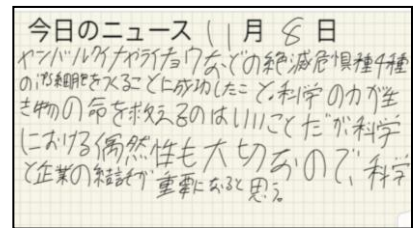 今日のニュース 11月8日
ヤンバルクイナやライチョウなどの絶滅危惧種4種
の iPS細胞をつくることに成功したこと。科学の力が生
き物の命を救えるのはいいことだが科学
における偶然性も大切なので、科学
と企業の結託が重要になると思う